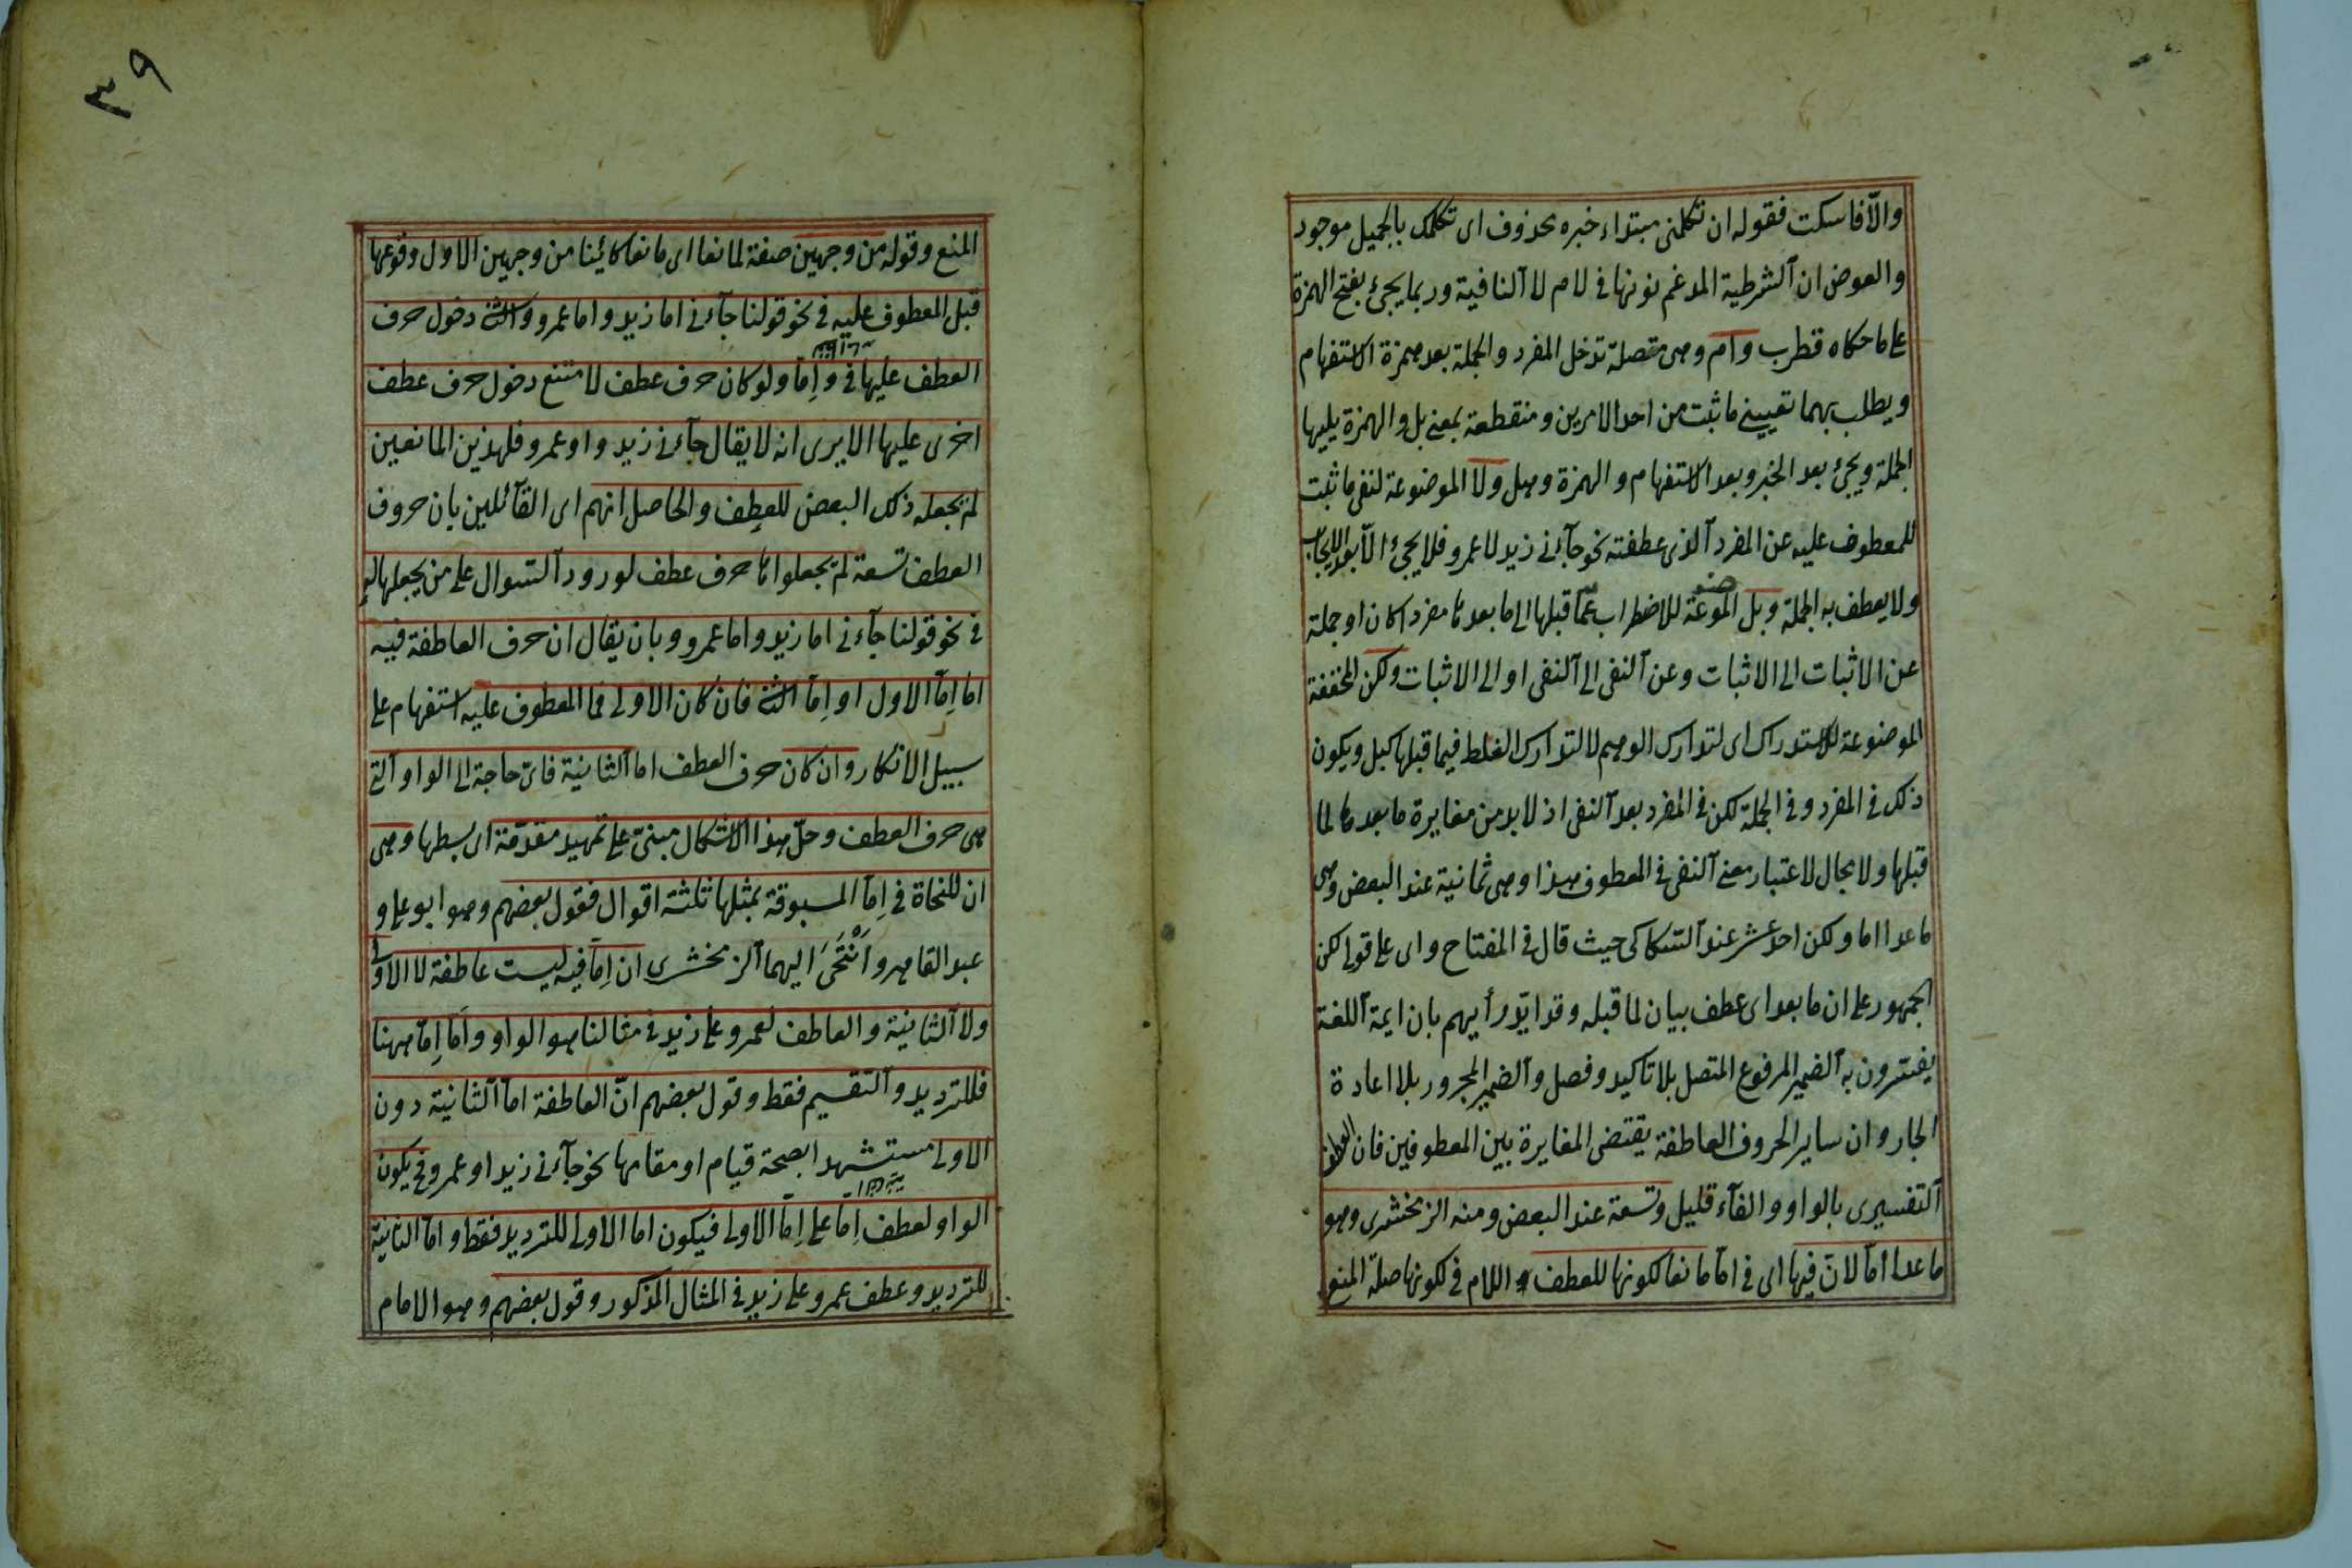 والّا فاسكت فقوله ان تكلمنى مبتداء خبره محذوف اى تكلمك بالجميل موجود
والعوض ان الشرطية المدغم نونها فى لام لا النافية وربما يجئ بفتح الهمزة
على ما حكاه قطرب وام وهى متصلة تدخل المفرد والجملة بعد همزة الاستفهام
ويطلب بهما تعيينى ما ثبت من احد الامرين ومنقطعة بمعنى بل والهمزة يليها
الجملة ويجئ بعد الخبر وبعد الاستفهام والهمزة وهل ولا الموضوعة لنفى ما ثبت
للمعطوف عليه عن المفرد الذى عطفته نحو جآءنى زيد لا عمرو فلا يجئ الّا بعد الايجاب
ولا يعطف به الجملة وبل الموضوعة للاضطراب عمّا قبلها الى ما بعدها مفردا كان او جملة
عن الاثبات الى الاثبات وعن النفى الى النفى او الى الاثبات ولكن المخففة
الموضوعة للاستدراك اى لتدارك الوهم لا لتدارك الغلط فيما قبلها كبل ويكون
ذلك فى المفرد وفى الجملة لكن فى المفرد بعد النفى اذ لا بد من مغايرة ما بعدها لما
قبلها ولا مجال لاعتبار معنى النفى فى المعطوف هذا وهى ثمانية عند البعض وهى
ما عدا اما ولكن احد عشر عند السكاكى حيث قال فى المفتاح واى على قولى لكن
الجمهور على ان ما بعد اى عطف بيان لما قبله وقد ايّد رأيهم بان ايمة اللغة
يفسرون به الضمير المرفوع المتصل بلا تاكيد وفصل والضمير المجرور بلا اعادة
الجار وان ساير الحروف العاطفة يقتضى المغايرة بين المعطوفين فان العطف
التفسيرى بالواو والفآء قليل وتسعة عند البعض ومنه الزمخشرى وهو
ما عدا امّا لان فيها اى فى امّا مانعا لكونها للعطف واللام فى لكونها صلة المنع
٣٩
المنع وقوله من وجهين صفة لمانعا اى مانعا كائنا من وجهين الاول وقوعها
قبل المعطوف عليه فى نحو قولنا جآءنى اما زيد واما عمرو والثانى دخول حرف
العطف عليها فى وإمّا ولو كان حرف عطف لامتنع دخول حرف عطف
اخرى عليها الا يرى انه لا يقال جآءنى زيد واو عمرو فلهذين المانعين
لم يجعله ذلك البعض للعطف والحاصل انهم اى القآئلين بان حروف
العطف تسعة لم يجعلوا امّا حرف عطف لورود السوال على من يجعلها له
فى نحو قولنا جآءنى اما زيد واما عمرو وبان يقال ان حرف العاطفة فيه
اما إمّا الاول او إمّا الثانى فان كان الاولى فما المعطوف عليه استفهام على
سبيل الانكار وان كان حرف العطف اما الثانية فاىّ حاجة الى الواو التى
هى حرف العطف وحلّ هذا الاشكال مبنىّ على تمهيد مقدّمة اى بسطها وهى
ان للنحاة فى إمّا المسبوقة بمثلها ثلثة اقوال فقول بعضهم وهو ابو على و
عبد القاهر وأنْتَحَى اليهما الزمخشرى ان إمّا فيه ليست عاطفة لا الاولى
ولا الثانية والعاطف لعمرو على زيد فى مثالنا هو الواو وأما إمّا ههنا
فللترديد والتقسيم فقط وقول بعضهم انّ العاطفة اما الثانية دون
الاولى مستشهدا بصحة قيام او مقامها نحو جآءنى زيد او عمرو فح يكون
الواو لعطف إمّا على إمّا الاولى فيكون اما الاولى للترديد فقط واما الثانية
للترديد وعطف عمرو على زيد فى المثال المذكور وقول بعضهم وهو الامام